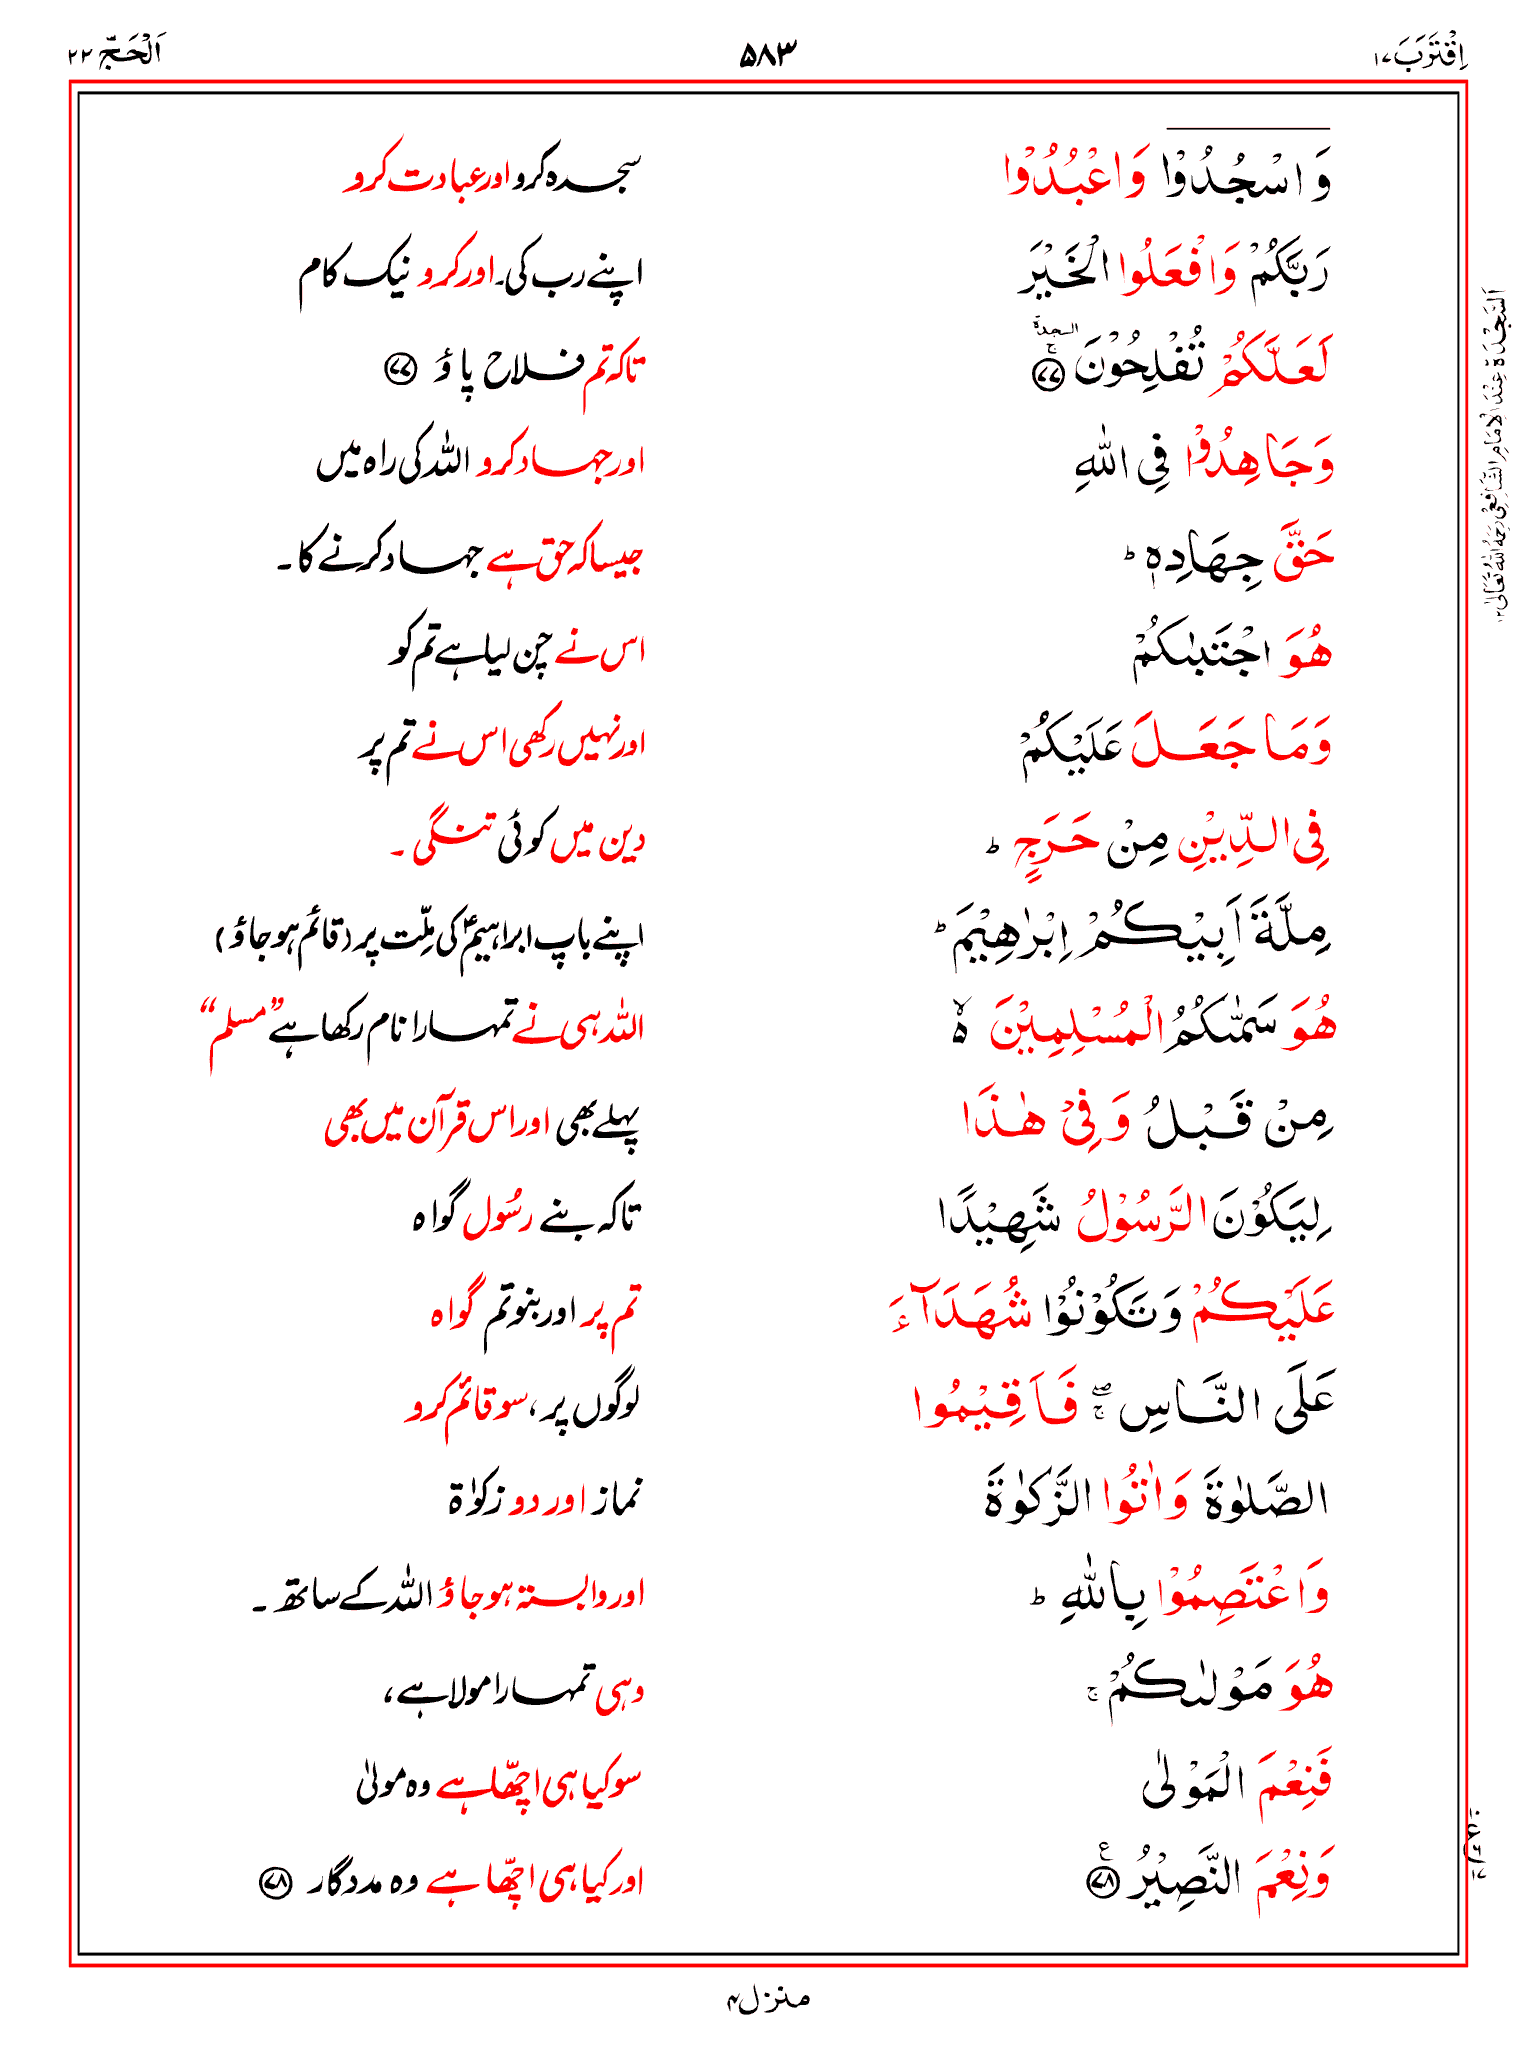 اِقْتَرَبَ ۱۷
۵۸۳
اَلْحَجّ ۲۲
وَاسْجُدُوْا وَاعْبُدُوْا
سجدہ کرو اور عبادت کرو
رَبَّكُمْ وَافْعَلُوا الْخَيْرَ
اپنے رب کی۔ اور کرو نیک کام
لَعَلَّكُمْ تُفْلِحُوْنَ ۚ السجدة ﴿۷۷﴾
تاکہ تم فلاح پاؤ ﴿۷۷﴾
وَجَاهِدُوْا فِي اللّٰهِ
اور جہاد کرو اللہ کی راہ میں
حَقَّ جِهَادِهٖ ؕ
جیسا کہ حق ہے جہاد کرنے کا۔
هُوَ اجْتَبٰىكُمْ
اس نے چن لیا ہے تم کو
وَمَا جَعَلَ عَلَيْكُمْ
اور نہیں رکھی اس نے تم پر
فِي الدِّيْنِ مِنْ حَرَجٍ ؕ
دین میں کوئی تنگی ۔
مِلَّةَ اَبِيْكُمْ اِبْرٰهِيْمَ ؕ
اپنے باپ ابراہیمؑ کی مِلّت پر (قائم ہو جاؤ)
هُوَ سَمّٰىكُمُ الْمُسْلِمِيْنَ ۙ۬
اللہ ہی نے تمہارا نام رکھا ہے ”مسلم“
مِنْ قَبْلُ وَفِيْ هٰذَا
پہلے بھی اور اس قرآن میں بھی
لِيَكُوْنَ الرَّسُوْلُ شَهِيْدًا
تاکہ بنے رسُول گواہ
عَلَيْكُمْ وَتَكُوْنُوْا شُهَدَآءَ
تم پر اور بنو تم گواہ
عَلَى النَّاسِ ۖۚ فَاَقِيْمُوا
لوگوں پر، سو قائم کرو
الصَّلٰوةَ وَاٰتُوا الزَّكٰوةَ
نماز اور دو زکوٰة
وَاعْتَصِمُوْا بِاللّٰهِ ؕ
اور وابستہ ہو جاؤ اللہ کے ساتھ ۔
هُوَ مَوْلٰىكُمْ ۚ
وہی تمہارا مولا ہے،
فَنِعْمَ الْمَوْلٰى
سو کیا ہی اچھّا ہے وہ مولیٰ
وَنِعْمَ النَّصِيْرُ ۧ ﴿۷۸﴾
اور کیا ہی اچھّا ہے وہ مددگار ﴿۷۸﴾
اَلسَّجْدَةُ عِنْدَ الْاِمَامِ الشَّافِعِيِّ رَحِمَهُ اللّٰهُ تَعَالٰى ۱۲
منزل ۴